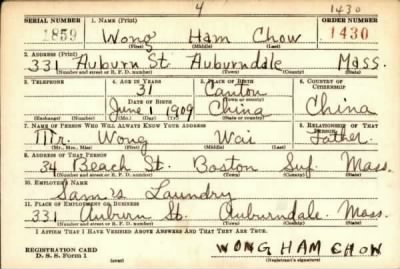 4 1430
SERIAL NUMBER 1. NAME (Print) ORDER NUMBER
1859 Wong Ham Chow 1430
(First) (Middle) (Last)
2. ADDRESS (Print)
331 Auburn St. Auburndale Mass.
(Number and street or R. F. D. number) (Town) (County) (State)
3. TELEPHONE 4. AGE IN YEARS 5. PLACE OF BIRTH 6. COUNTRY OF CITIZENSHIP
31 Canton
DATE OF BIRTH (Town or county)
June 1 1909 China China
(Exchange) (Number) (Mo.) (Day) (Yr.) (State or country)
7. NAME OF PERSON WHO WILL ALWAYS KNOW YOUR ADDRESS 8. RELATIONSHIP OF THAT PERSON
Mr. Wong Wai Father
(Mr., Mrs., Miss) (First) (Middle) (Last)
9. ADDRESS OF THAT PERSON
34 Beach St. Boston Suf. Mass.
(Number and street or R. F. D. number) (Town) (County) (State)
10. EMPLOYER'S NAME
Sam's Laundry
11. PLACE OF EMPLOYMENT OR BUSINESS
331 Auburn St. Auburndale Mass.
(Number and street or R. F. D. number) (Town) (County) (State)
I AFFIRM THAT I HAVE VERIFIED ABOVE ANSWERS AND THAT THEY ARE TRUE.
REGISTRATION CARD
D. S. S. Form 1 (over) WONG HAM CHOW
(Registrant's signature)